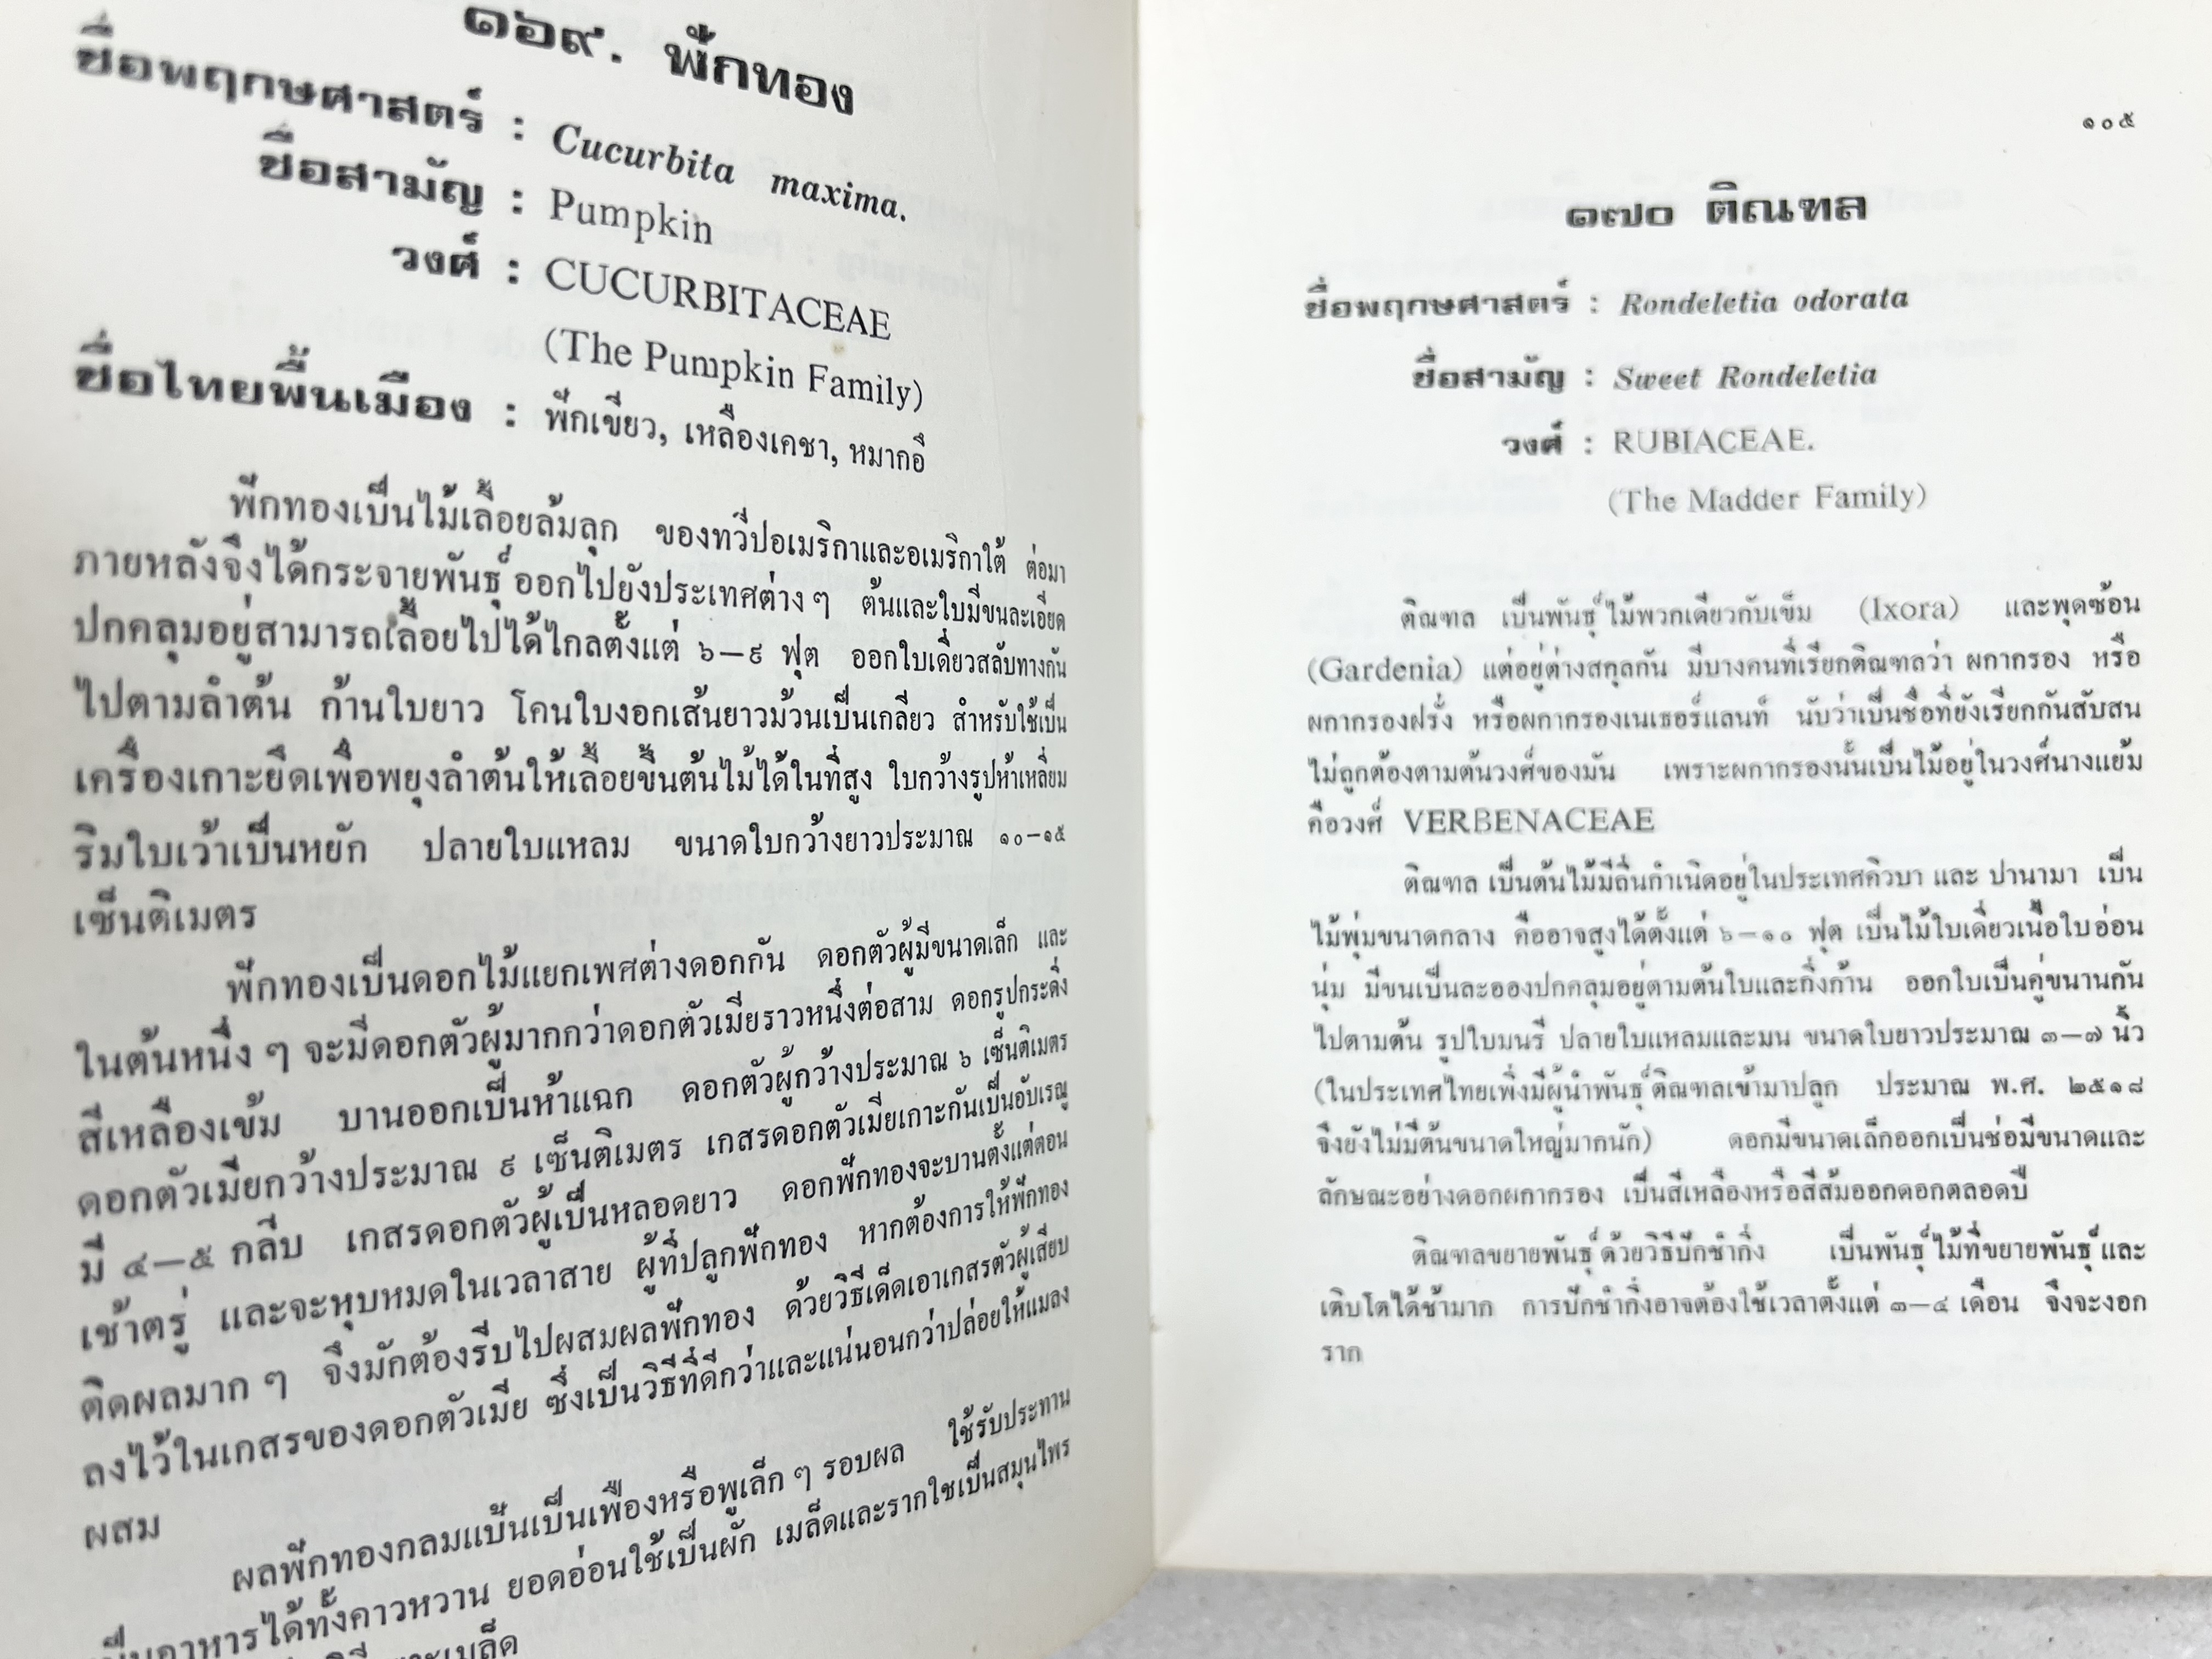 ๑๖๙. ฟักทอง
ชื่อพฤกษศาสตร์ : Cucurbita maxima.
ชื่อสามัญ : Pumpkin
วงศ์ : CUCURBITACEAE
(The Pumpkin Family)
ชื่อไทยพื้นเมือง : ฟักเขียว, เหลืองเคชา, หมากอึ
ฟักทองเป็นไม้เลื้อยล้มลุก ของทวีปอเมริกาและอเมริกาใต้ ต่อมา
ภายหลังจึงได้กระจายพันธุ์ออกไปยังประเทศต่าง ๆ ต้นและใบมีขนละเอียด
ปกคลุมอยู่สามารถเลื้อยไปได้ไกลตั้งแต่ ๖—๙ ฟุต ออกใบเดี่ยวสลับทางกัน
ไปตามลำต้น ก้านใบยาว โคนใบงอกเส้นยาวม้วนเป็นเกลียว สำหรับใช้เป็น
เครื่องเกาะยึดเพื่อพยุงลำต้นให้เลื้อยขึ้นต้นไม้ได้ในที่สูง ใบกว้างรูปห้าเหลี่ยม
ริมใบเว้าเป็นหยัก ปลายใบแหลม ขนาดใบกว้างยาวประมาณ ๑๐—๑๕
เซ็นติเมตร
ฟักทองเป็นดอกไม้แยกเพศต่างดอกกัน ดอกตัวผู้มีขนาดเล็ก และ
ในต้นหนึ่ง ๆ จะมีดอกตัวผู้มากกว่าดอกตัวเมียราวหนึ่งต่อสาม ดอกรูปกระดิ่ง
สีเหลืองเข้ม บานออกเป็นห้าแฉก ดอกตัวผู้กว้างประมาณ ๖ เซ็นติเมตร
ดอกตัวเมียกว้างประมาณ ๙ เซ็นติเมตร เกสรดอกตัวเมียเกาะกันเป็นอับเรณู
มี ๔—๕ กลีบ เกสรดอกตัวผู้เป็นหลอดยาว ดอกฟักทองจะบานตั้งแต่ตอน
เช้าตรู่ และจะหุบหมดในเวลาสาย ผู้ที่ปลูกฟักทอง หากต้องการให้ฟักทอง
ติดผลมาก ๆ จึงมักต้องรีบไปผสมผลฟักทอง ด้วยวิธีเด็ดเอาเกสรตัวผู้เสียบ
ลงไว้ในเกสรของดอกตัวเมีย ซึ่งเป็นวิธีที่ดีกว่าและแน่นอนกว่าปล่อยให้แมลง
ผสม
ผลฟักทองกลมแป้นเป็นเฟืองหรือพูเล็ก ๆ รอบผล ใช้รับประทาน
เป็นอาหารได้ทั้งคาวหวาน ยอดอ่อนใช้เป็นผัก เมล็ดและรากใชเป็นสมุนไพร
เมล็ด
๑๐๕
๑๗๐ ติณฑล
ชื่อพฤกษศาสตร์ : Rondeletia odorata
ชื่อสามัญ : Sweet Rondeletia
วงศ์ : RUBIACEAE.
(The Madder Family)
ติณฑล เป็นพันธุ์ไม้พวกเดียวกับเข็ม (Ixora) และพุดซ้อน
(Gardenia) แต่อยู่ต่างสกุลกัน มีบางคนที่เรียกติณฑลว่า ผกากรอง หรือ
ผกากรองฝรั่ง หรือผกากรองเนเธอร์แลนท์ นับว่าเป็นชื่อที่ยังเรียกกันสับสน
ไม่ถูกต้องตามต้นวงศ์ของมัน เพราะผกากรองนั้นเป็นไม้อยู่ในวงศ์นางแย้ม
คือวงศ์ VERBENACEAE
ติณฑล เป็นต้นไม้มีถิ่นกำเนิดอยู่ในประเทศคิวบา และ ปานามา เป็น
ไม้พุ่มขนาดกลาง คืออาจสูงได้ตั้งแต่ ๖—๑๐ ฟุต เป็นไม้ใบเดี่ยวเนื้อใบอ่อน
นุ่ม มีขนเป็นละอองปกคลุมอยู่ตามต้นใบและกิ่งก้าน ออกใบเป็นคู่ขนานกัน
ไปตามต้น รูปใบมนรี ปลายใบแหลมและมน ขนาดใบยาวประมาณ ๓—๗ นิ้ว
(ในประเทศไทยเพิ่งมีผู้นำพันธุ์ติณฑลเข้ามาปลูก ประมาณ พ.ศ. ๒๕๑๘
จึงยังไม่มีต้นขนาดใหญ่มากนัก) ดอกมีขนาดเล็กออกเป็นช่อมีขนาดและ
ลักษณะอย่างดอกผกากรอง เป็นสีเหลืองหรือสีส้มออกดอกตลอดปี
ติณฑลขยายพันธุ์ด้วยวิธีปักชำกิ่ง เป็นพันธุ์ไม้ที่ขยายพันธุ์และ
เติบโตได้ช้ามาก การปักชำกิ่งอาจต้องใช้เวลาตั้งแต่ ๓—๔ เดือน จึงจะงอก
ราก